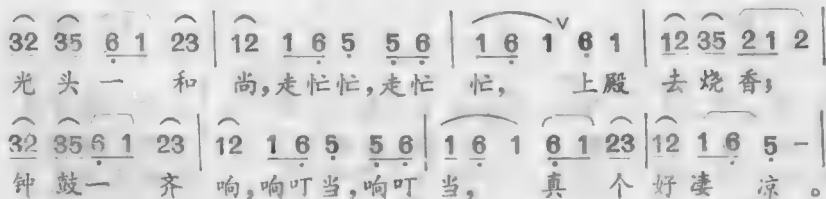 32 35 6 1 23 | 12 1 6 5 5 6 | 1 6 1 ∨ 6 1 | 12 35 2 1 2 |
光 头 一 和 尚,走忙忙,走忙 忙, 上殿 去烧香;
32 35 6 1 23 | 12 1 6 5 5 6 | 1 6 1 6 1 23 | 12 1 6 5 - |
钟 鼓一 齐 响,响叮当,响叮 当, 真 个 好凄 凉。